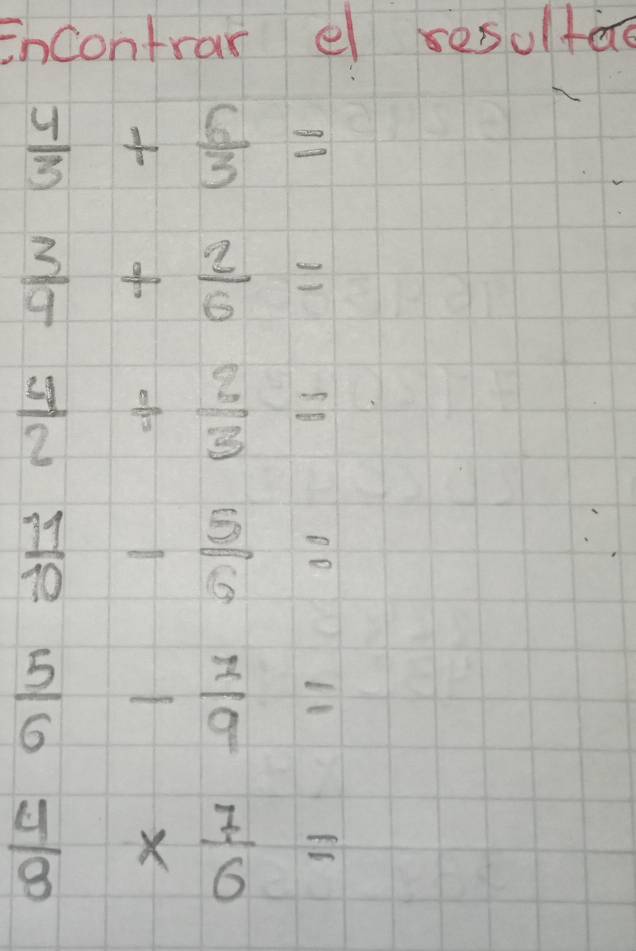 Encontrar el resultad
4/3 + 6/3 =
3/9 + 2/6 =
4/2 ÷ 2/3 =
11/10 - 5/6 =
5/6 - 7/9 =
4/8 × 7/6 =